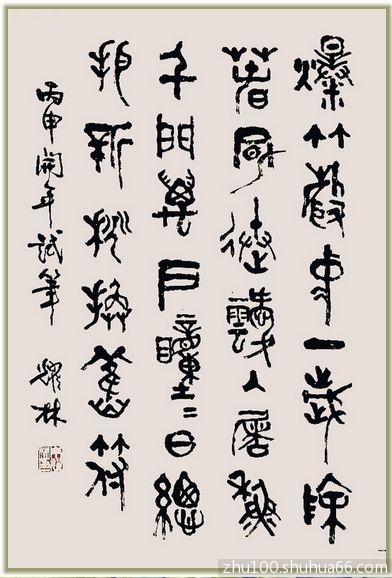 爆竹聲中一歲除
春風送暖入屠蘇
千門萬戶曈〻日總
把新桃換舊符
丙申開年試筆 耀林
zhu100.shuhua66.com